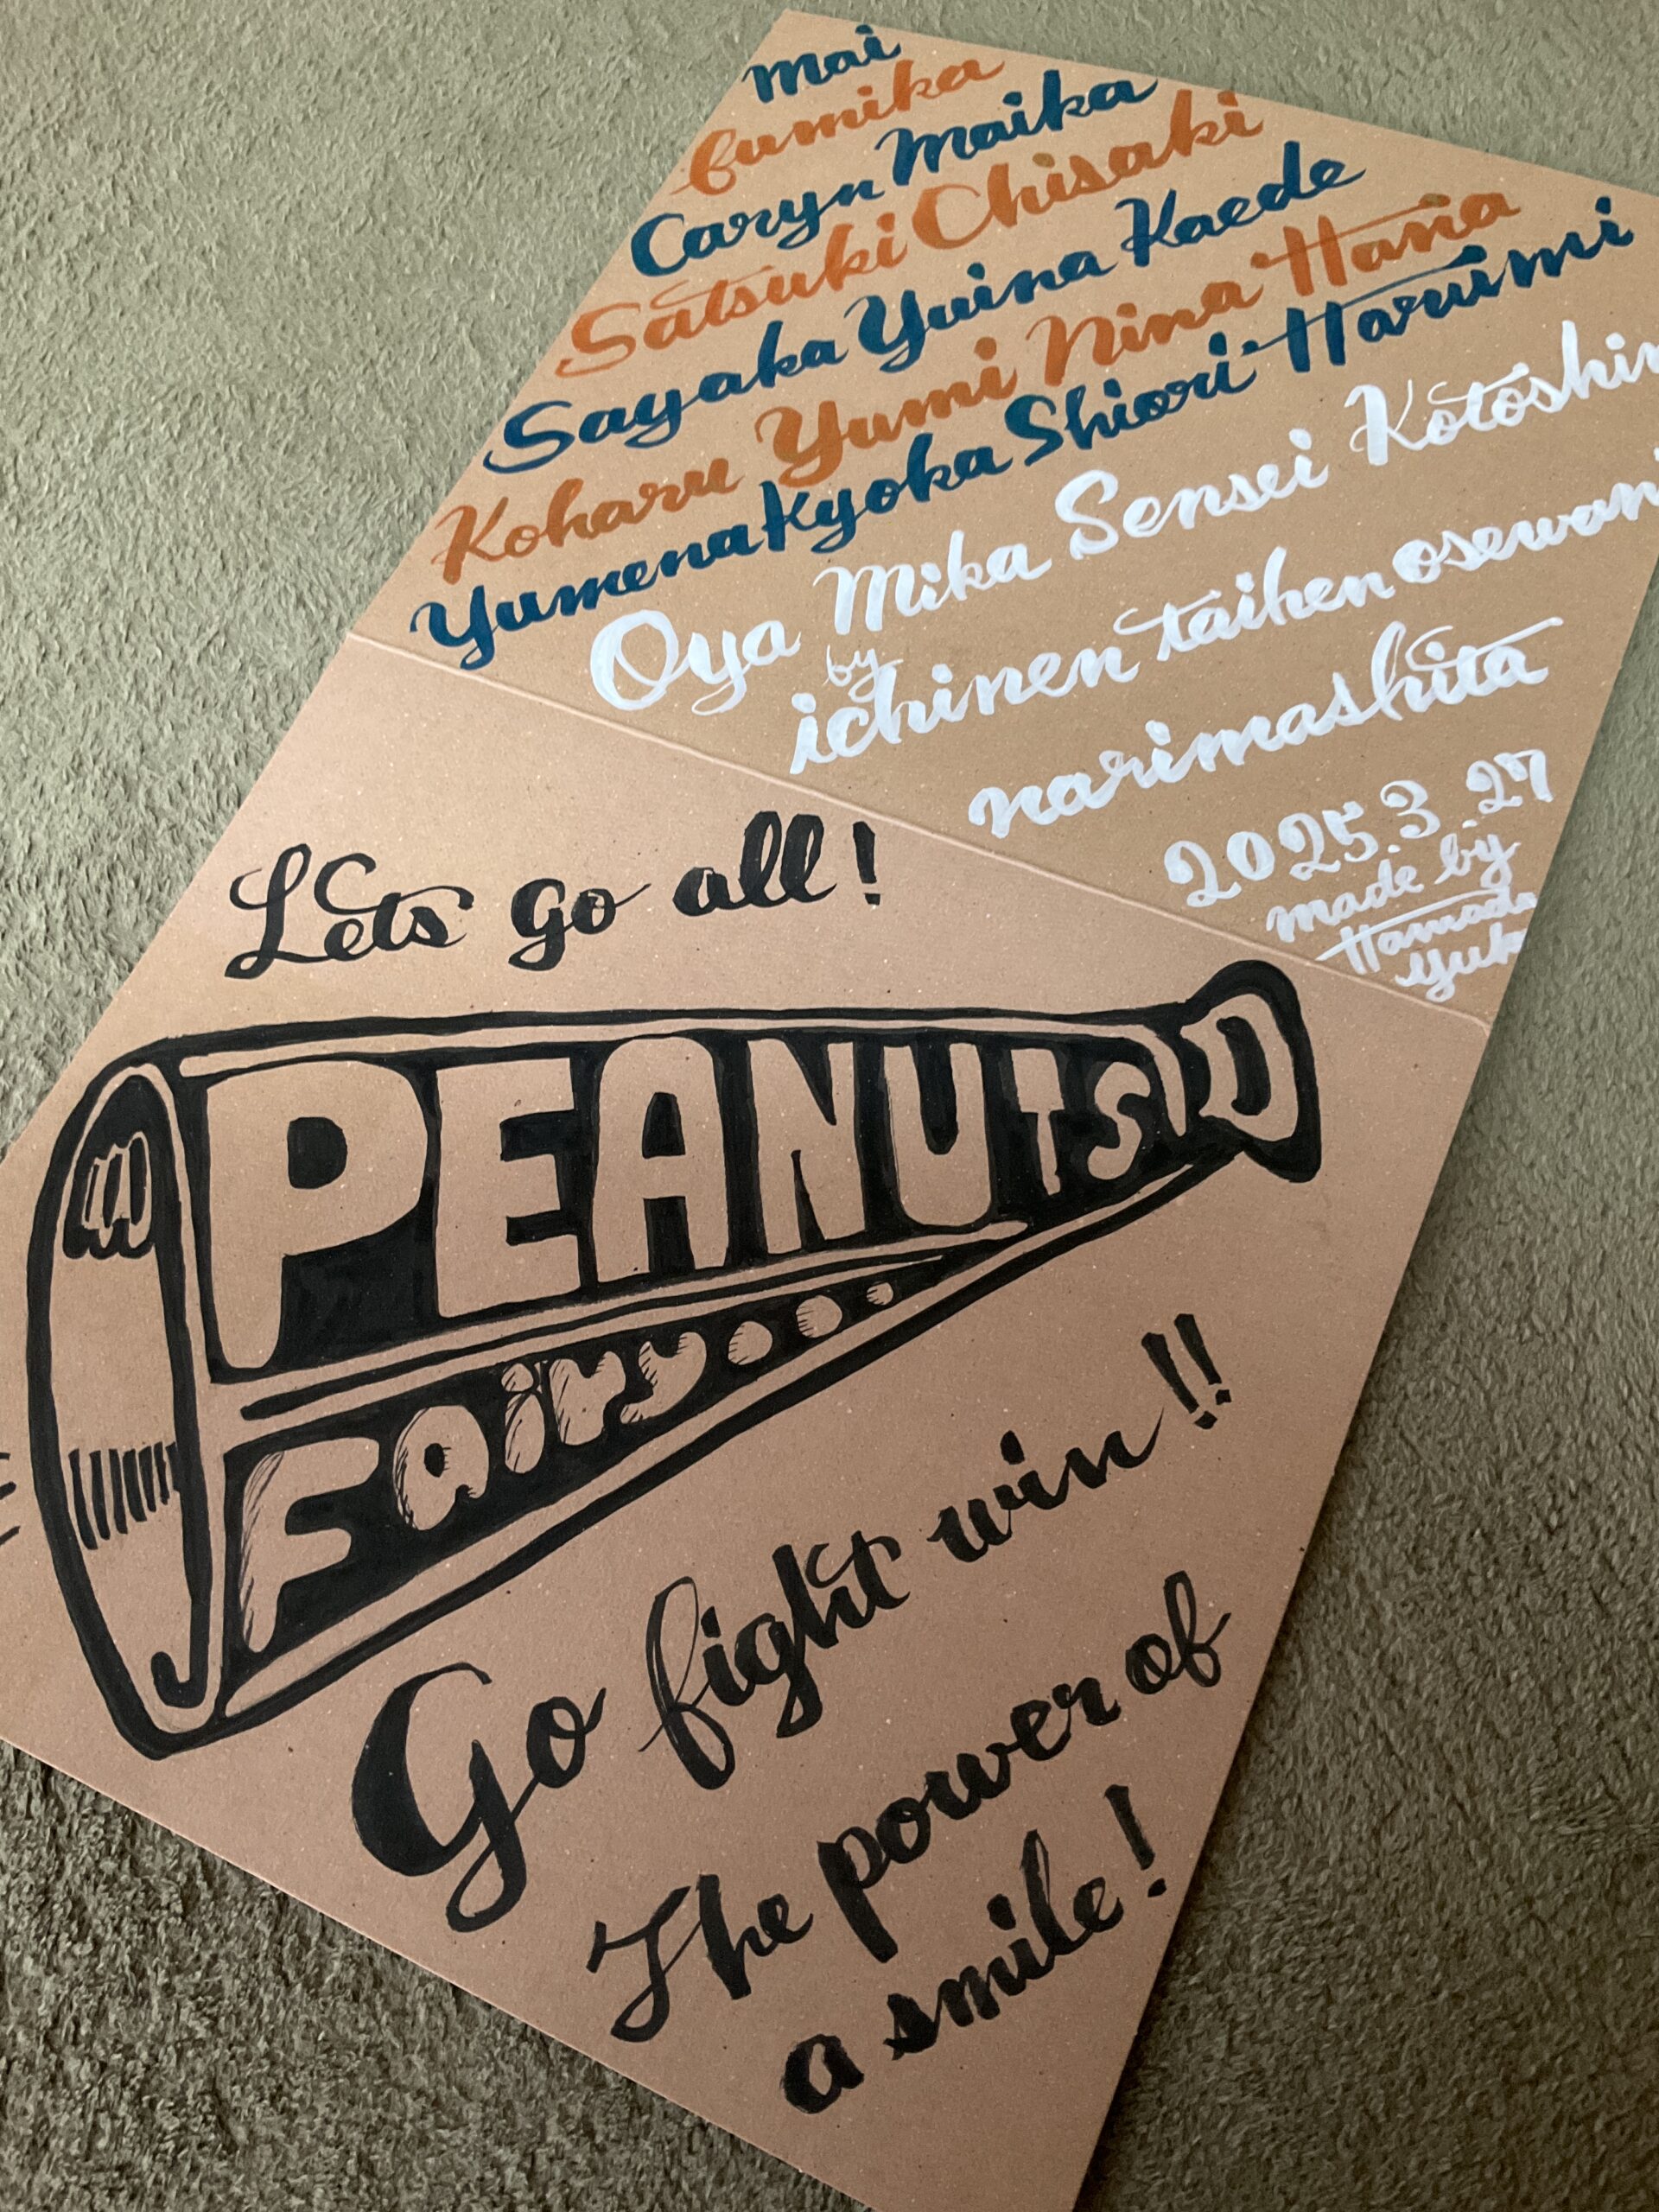 Mai
Fumika
Caryn Maika
Satsuki Chisaki
Sayaka Yuina Kaede
Koharu Yumi Nina Hana
Yumena Kyoka Shiori Harumi
Oya Mika Sensei
by
ichinen taihen
narimashita
2025.3.27
made by
Hamada
Let's go all!
PEANUTS D
Fairy...
Go fight win!!
The power of
a smile!